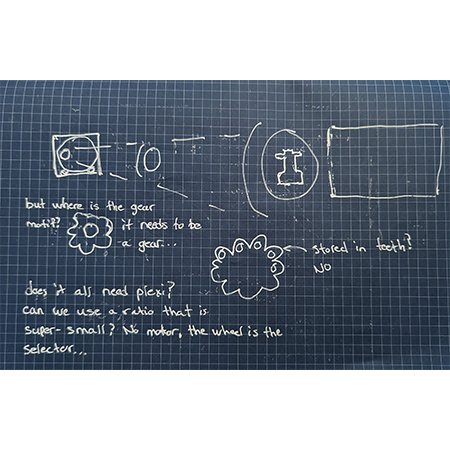 but where is the gear
motif?
it needs to be
a gear...
stored in teeth?
NO
does it all need plexi?
can we use a ratio that is
super-small? No motor, the wheel is the
selector...